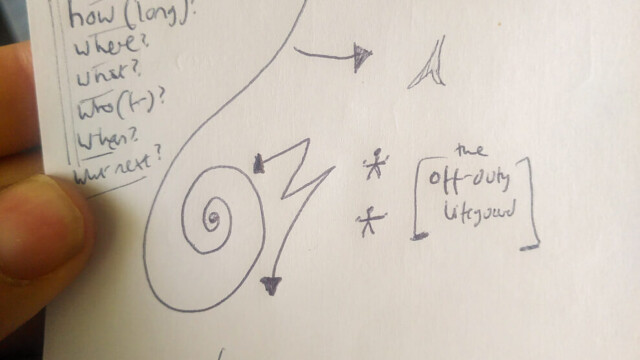 how (long)?
where?
what?
who(+)?
when?
what next?
the
off-duty
lifeguard